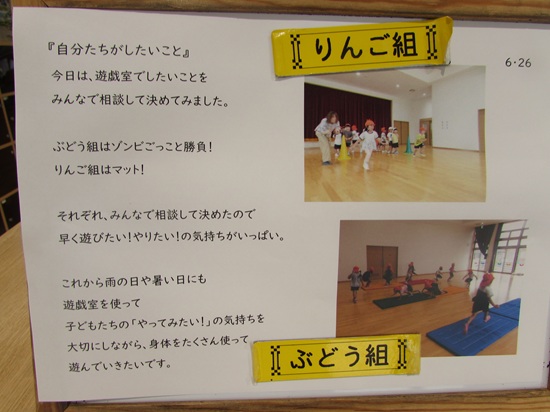 りんご組
6・26
『自分たちがしたいこと』
今日は、遊戯室でしたいことを
みんなで相談して決めてみました。
ぶどう組はゾンビごっこと勝負!
りんご組はマット!
それぞれ、みんなで相談して決めたので
早く遊びたい!やりたい!の気持ちがいっぱい。
これから雨の日や暑い日にも
遊戯室を使って
子どもたちの「やってみたい!」の気持ちを
大切にしながら、身体をたくさん使って
遊んでいきたいです。
ぶどう組